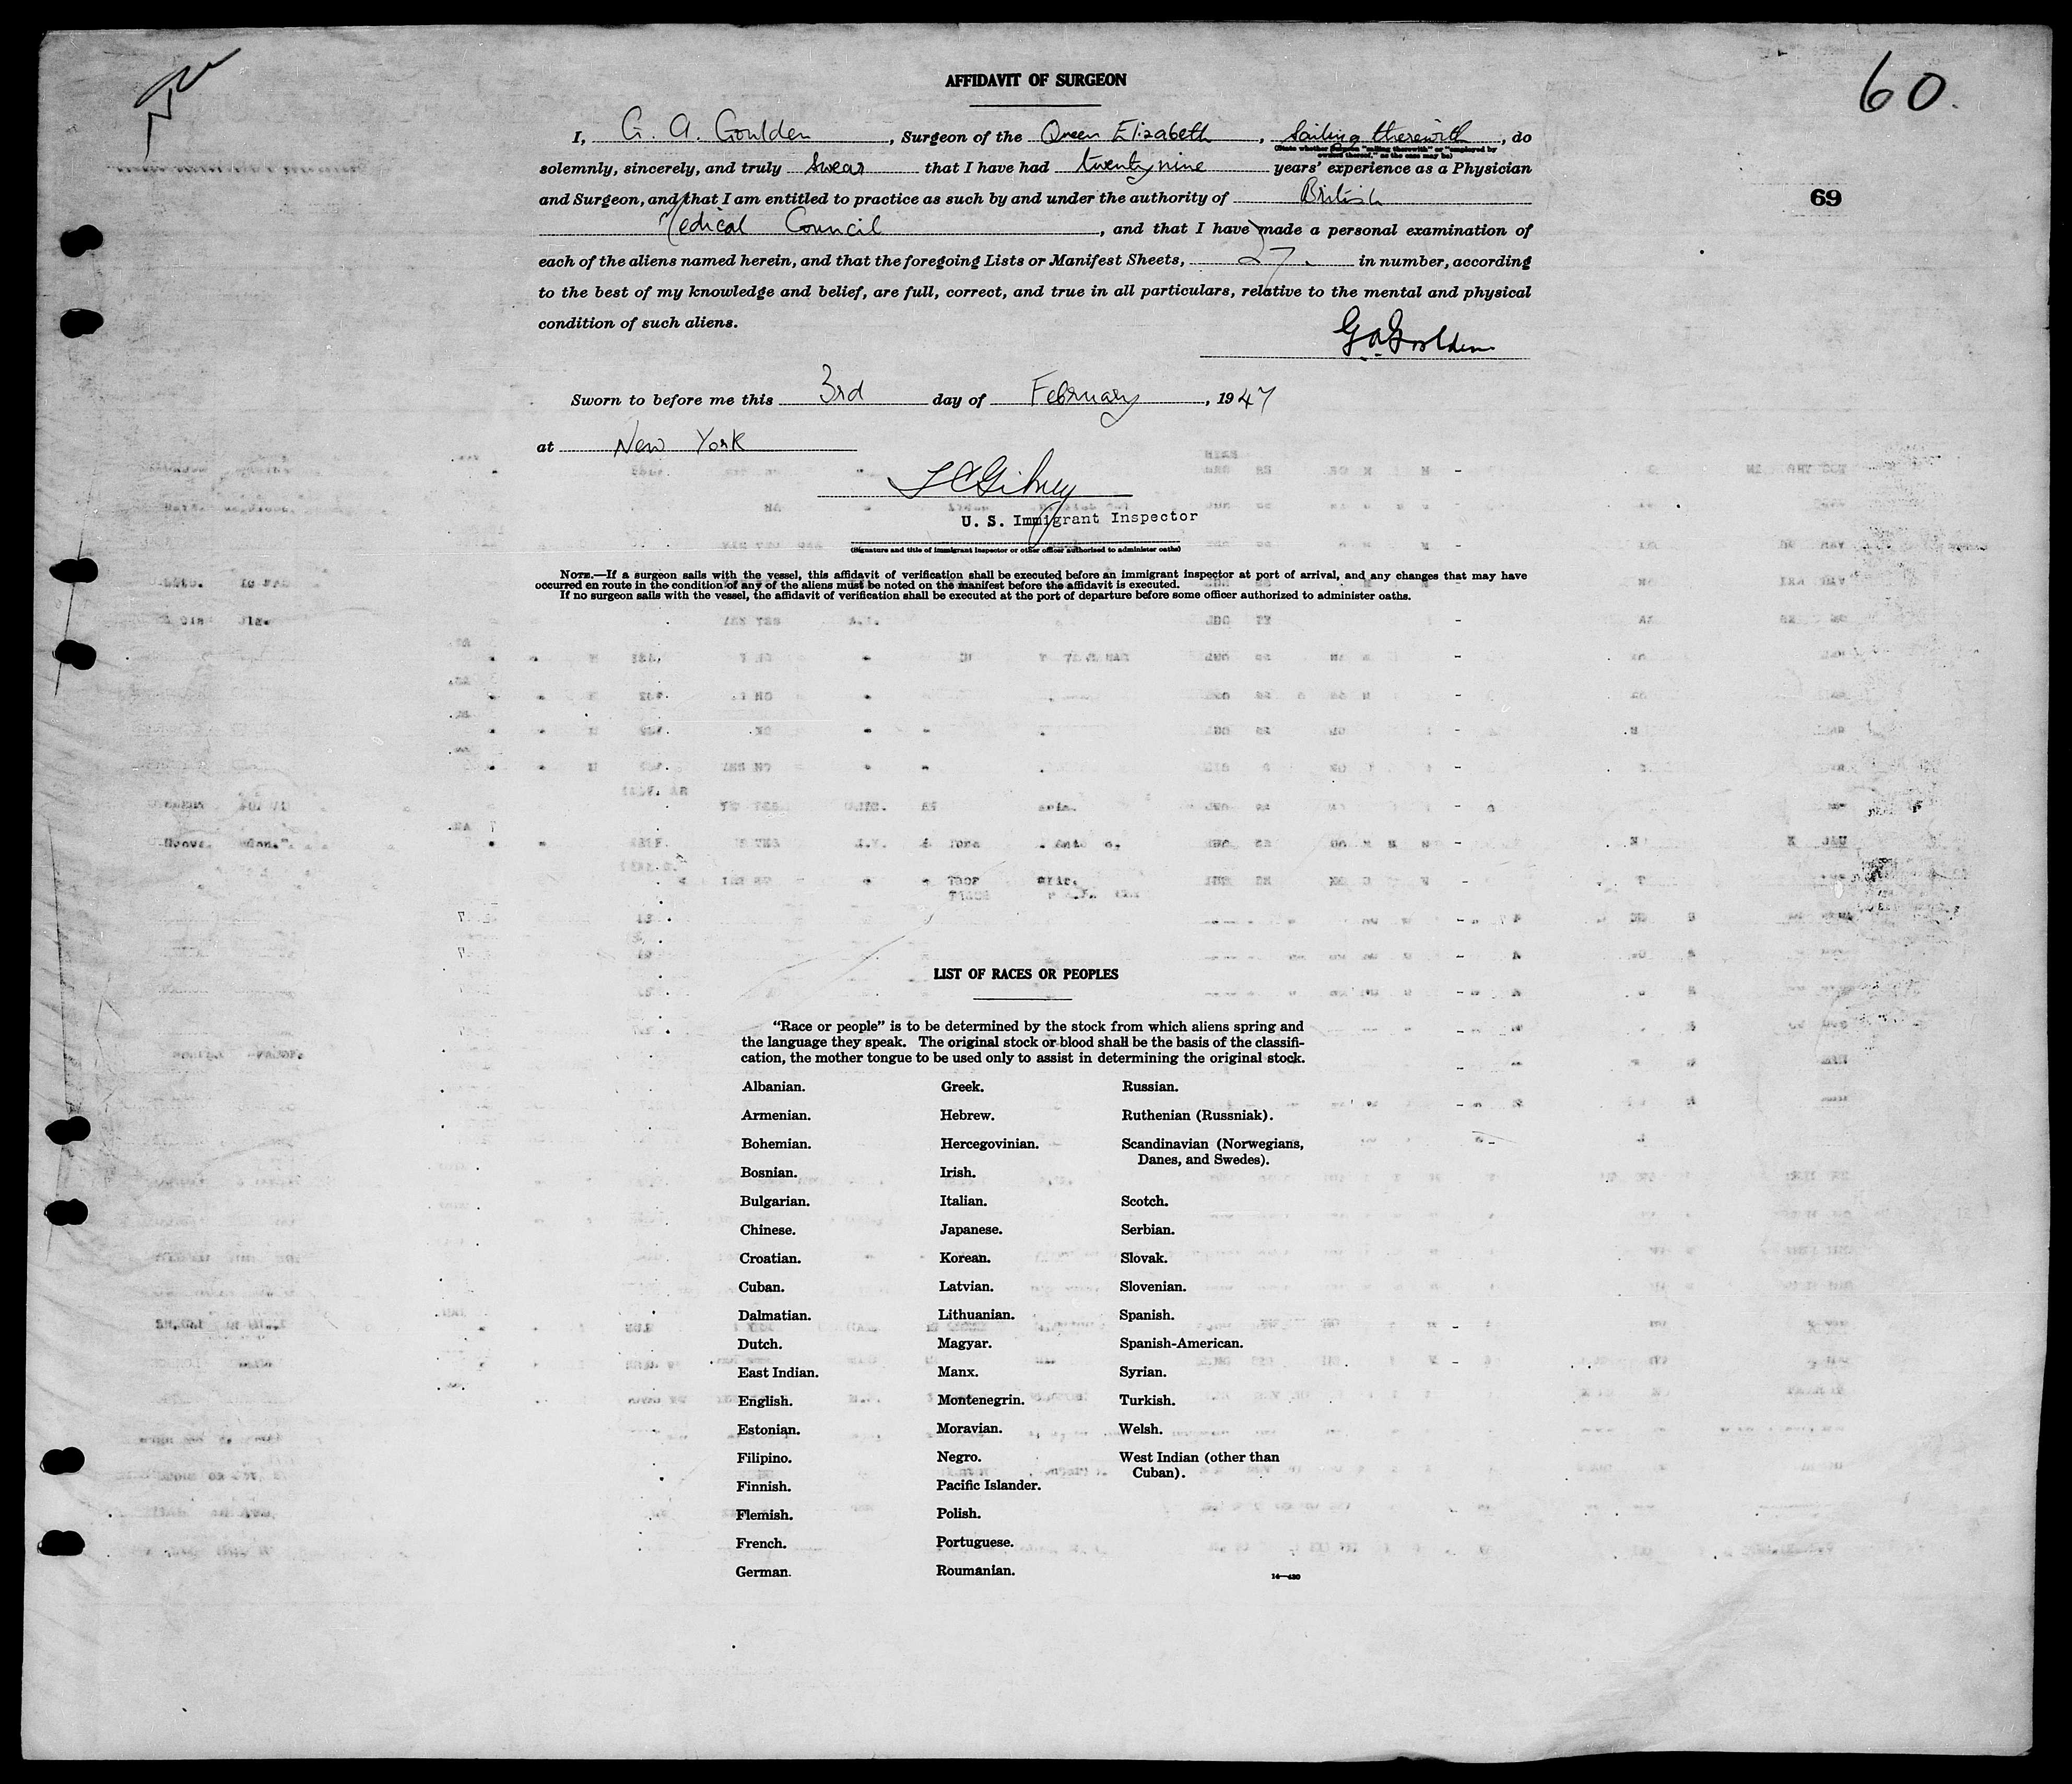 60.
AFFIDAVIT OF SURGEON
I, G. A. Goulden, Surgeon of the Queen Elizabeth, Sailing therewith, do
(State whether Surgeon "sailing therewith" or "employed by
owners thereof," as the case may be)
solemnly, sincerely, and truly swear that I have had twenty nine years' experience as a Physician
and Surgeon, and that I am entitled to practice as such by and under the authority of British
69
Medical Council, and that I have made a personal examination of
each of the aliens named herein, and that the foregoing Lists or Manifest Sheets, 27. in number, according
to the best of my knowledge and belief, are full, correct, and true in all particulars, relative to the mental and physical
condition of such aliens.
G.A.Goulden
Sworn to before me this 3rd day of February, 1947
at New York
U. S. Immigrant Inspector
(Signature and title of immigrant inspector or other officer authorized to administer oaths)
NOTE.—If a surgeon sails with the vessel, this affidavit of verification shall be executed before an immigrant inspector at port of arrival, and any changes that may have
occurred en route in the condition of any of the aliens must be noted on the manifest before the affidavit is executed.
If no surgeon sails with the vessel, the affidavit of verification shall be executed at the port of departure before some officer authorized to administer oaths.
LIST OF RACES OR PEOPLES
"Race or people" is to be determined by the stock from which aliens spring and
the language they speak. The original stock or blood shall be the basis of the classifi-
cation, the mother tongue to be used only to assist in determining the original stock.
Albanian.
Armenian.
Bohemian.
Bosnian.
Bulgarian.
Chinese.
Croatian.
Cuban.
Dalmatian.
Dutch.
East Indian.
English.
Estonian.
Filipino.
Finnish.
Flemish.
French.
German.
Greek.
Hebrew.
Hercegovinian.
Irish.
Italian.
Japanese.
Korean.
Latvian.
Lithuanian.
Magyar.
Manx.
Montenegrin.
Moravian.
Negro.
Pacific Islander.
Polish.
Portuguese.
Roumanian.
Russian.
Ruthenian (Russniak).
Scandinavian (Norwegians,
Danes, and Swedes).
Scotch.
Serbian.
Slovak.
Slovenian.
Spanish.
Spanish-American.
Syrian.
Turkish.
Welsh.
West Indian (other than
Cuban).
14—430